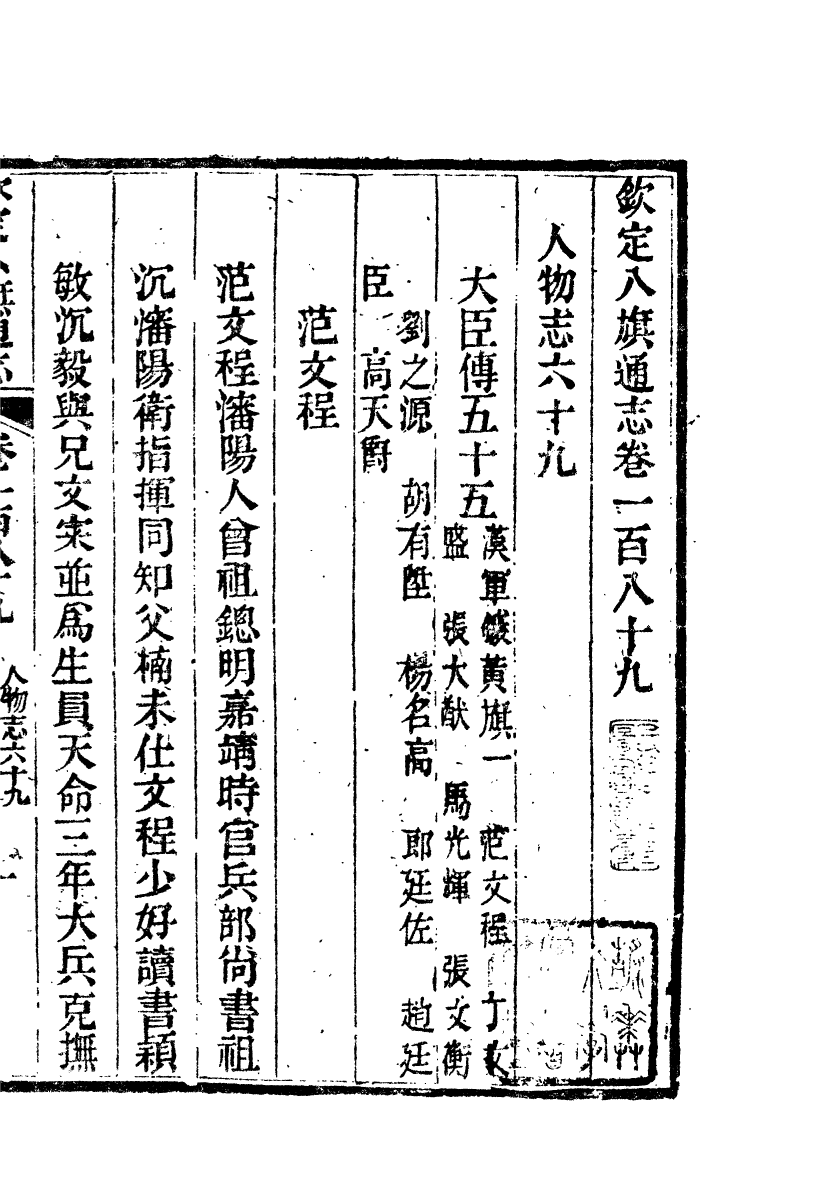 欽定八旗通志卷一百八十九
人物志六十九
大臣傳五十五
漢軍鑲黃旗一 范文程 丁文
盛 張大猷 馬光輝 張文衡
劉之源 胡有陞 楊名高 郎廷佐 趙廷
臣 高天爵
范文程
范文程瀋陽人曾祖鏓明嘉靖時官兵部尙書祖
沉瀋陽衛指揮同知父楠未仕文程少好讀書穎
敏沉毅與兄文寀並爲生員天命三年大兵克撫
欽定八旗通志 卷一百八十九 人物志六十九 一